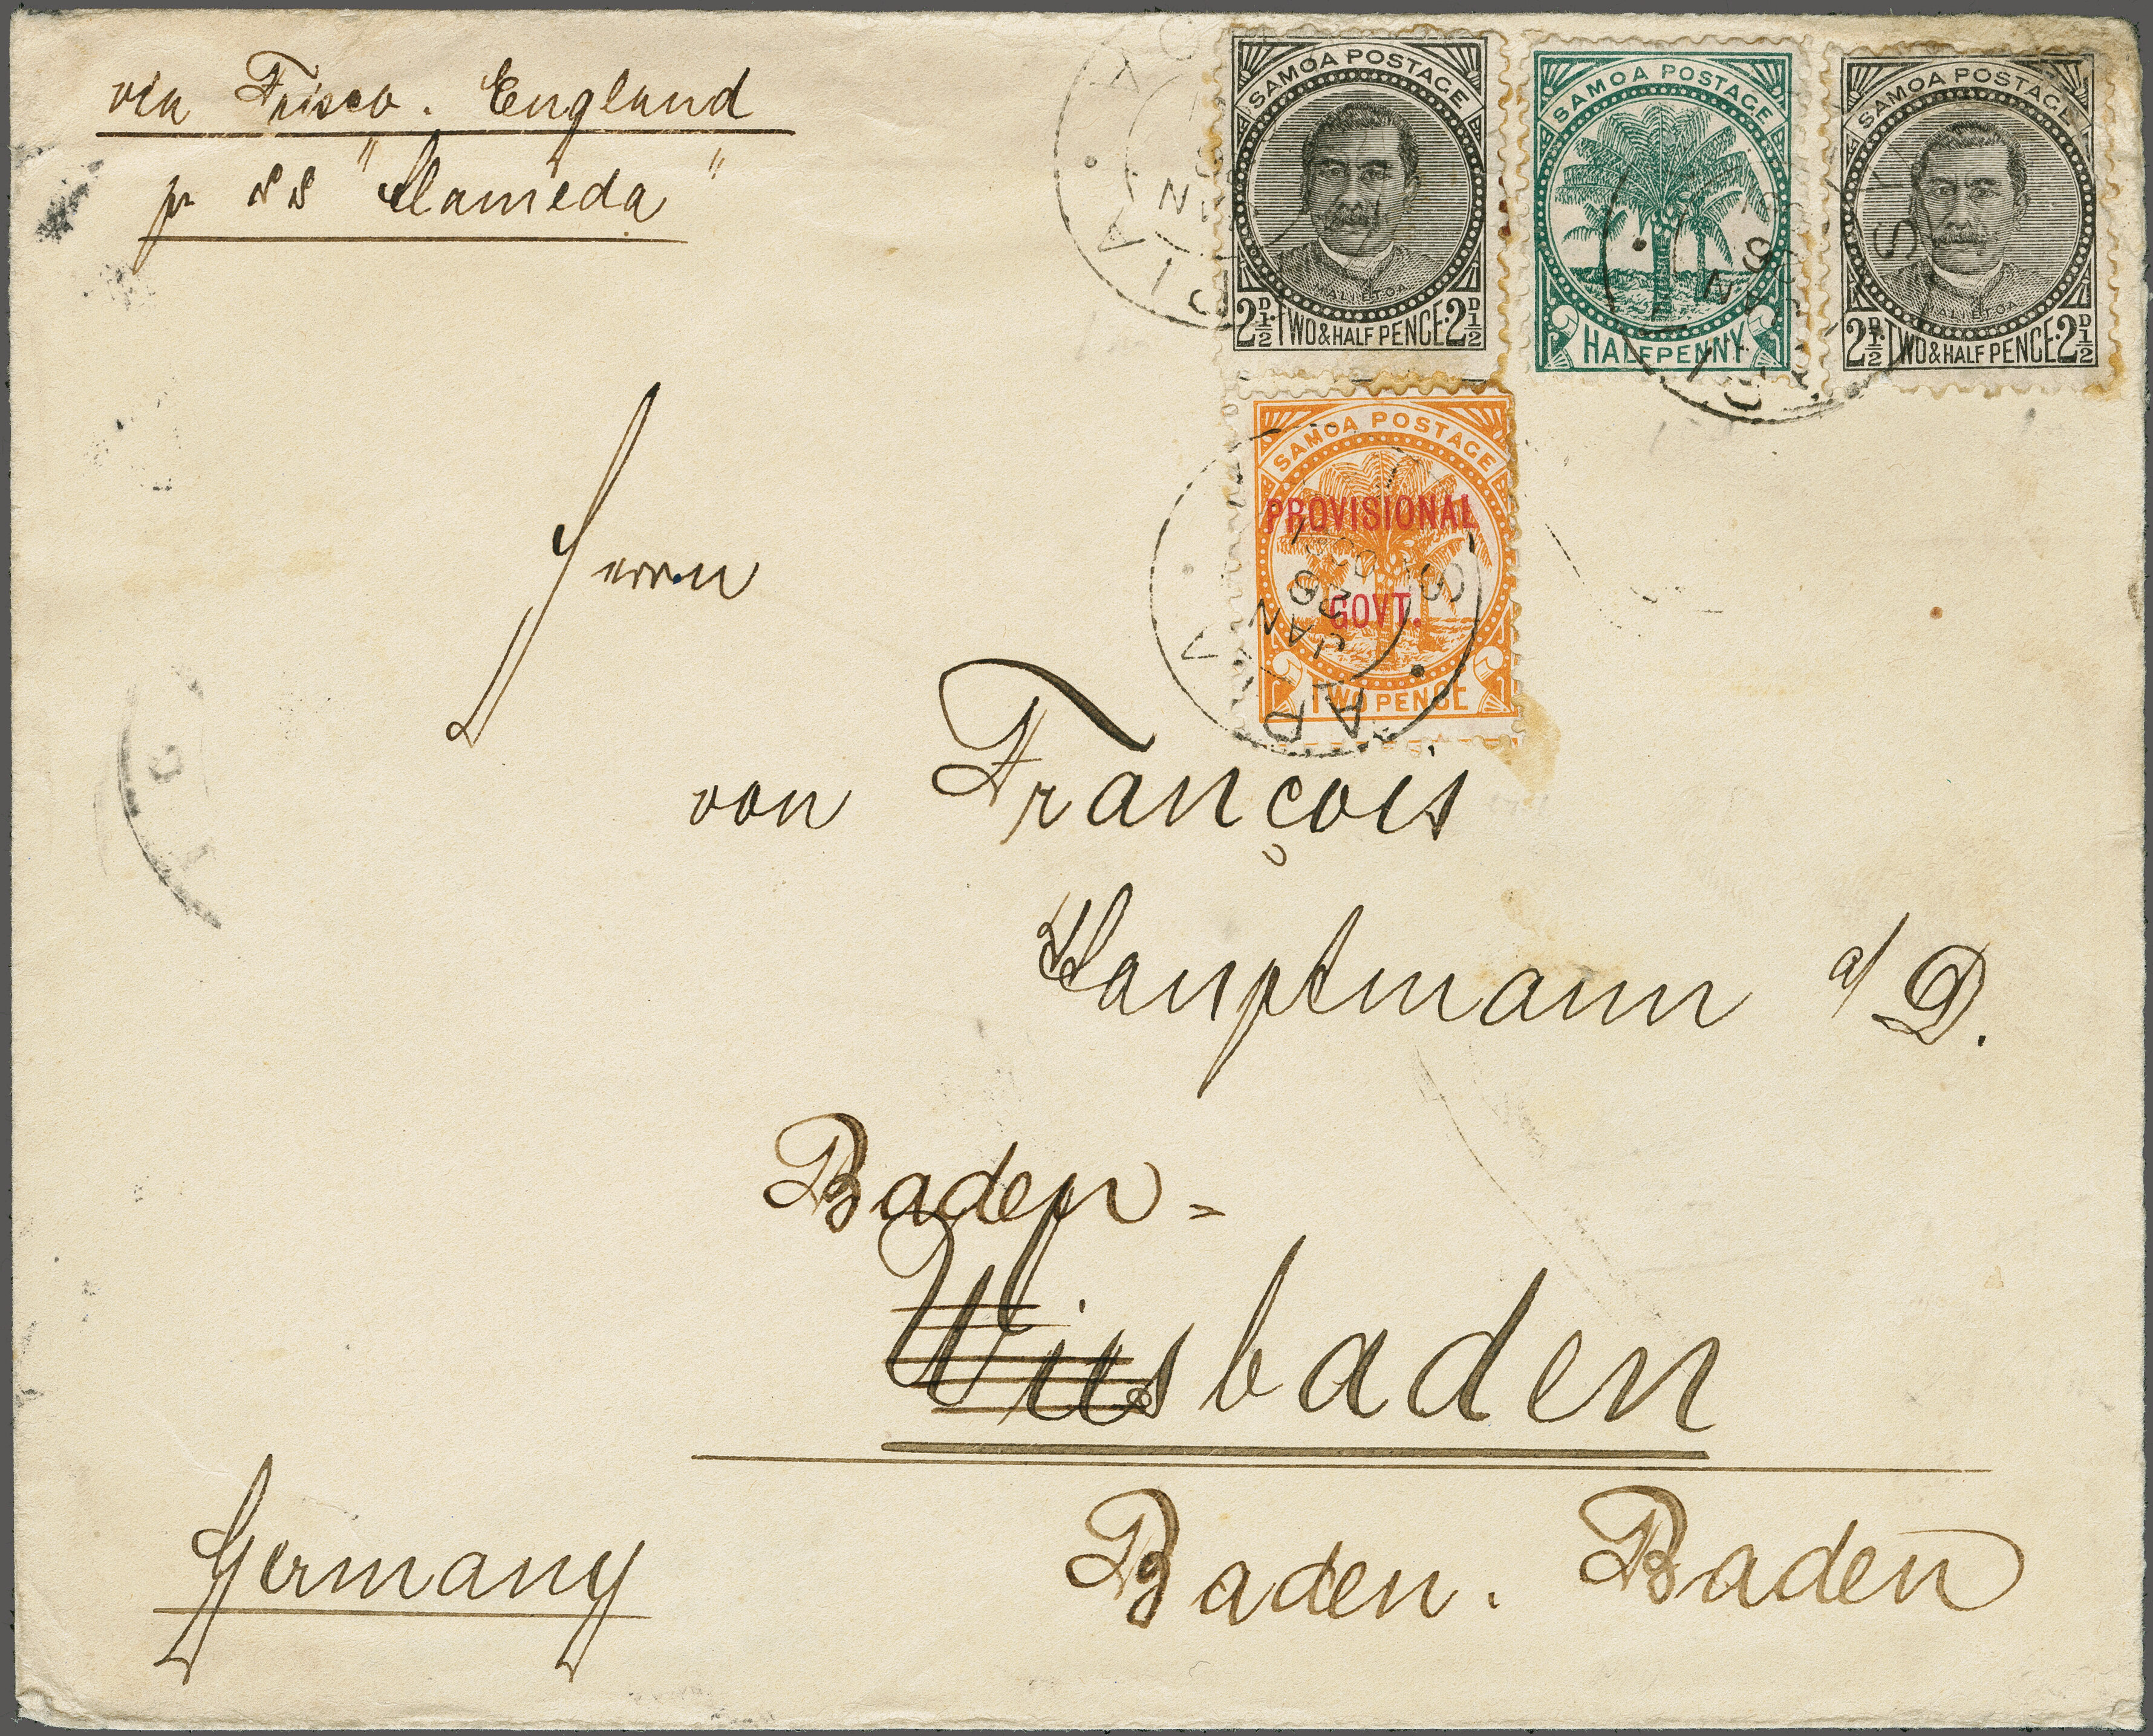 via Frisco. England
pr SS "Alameda"
SAMOA POSTAGE
MALIETOA
2D½ TWO & HALF PENCE 2D½
SAMOA POSTAGE
HALFPENNY
SAMOA POSTAGE
MALIETOA
2D½ TWO & HALF PENCE 2D½
SAMOA POSTAGE
PROVISIONAL
GOVT.
TWO PENCE
APIA
JAN
Herrn
von François
Hauptmann a/D.
Baden-
Wiesbaden
Baden. Baden
Germany